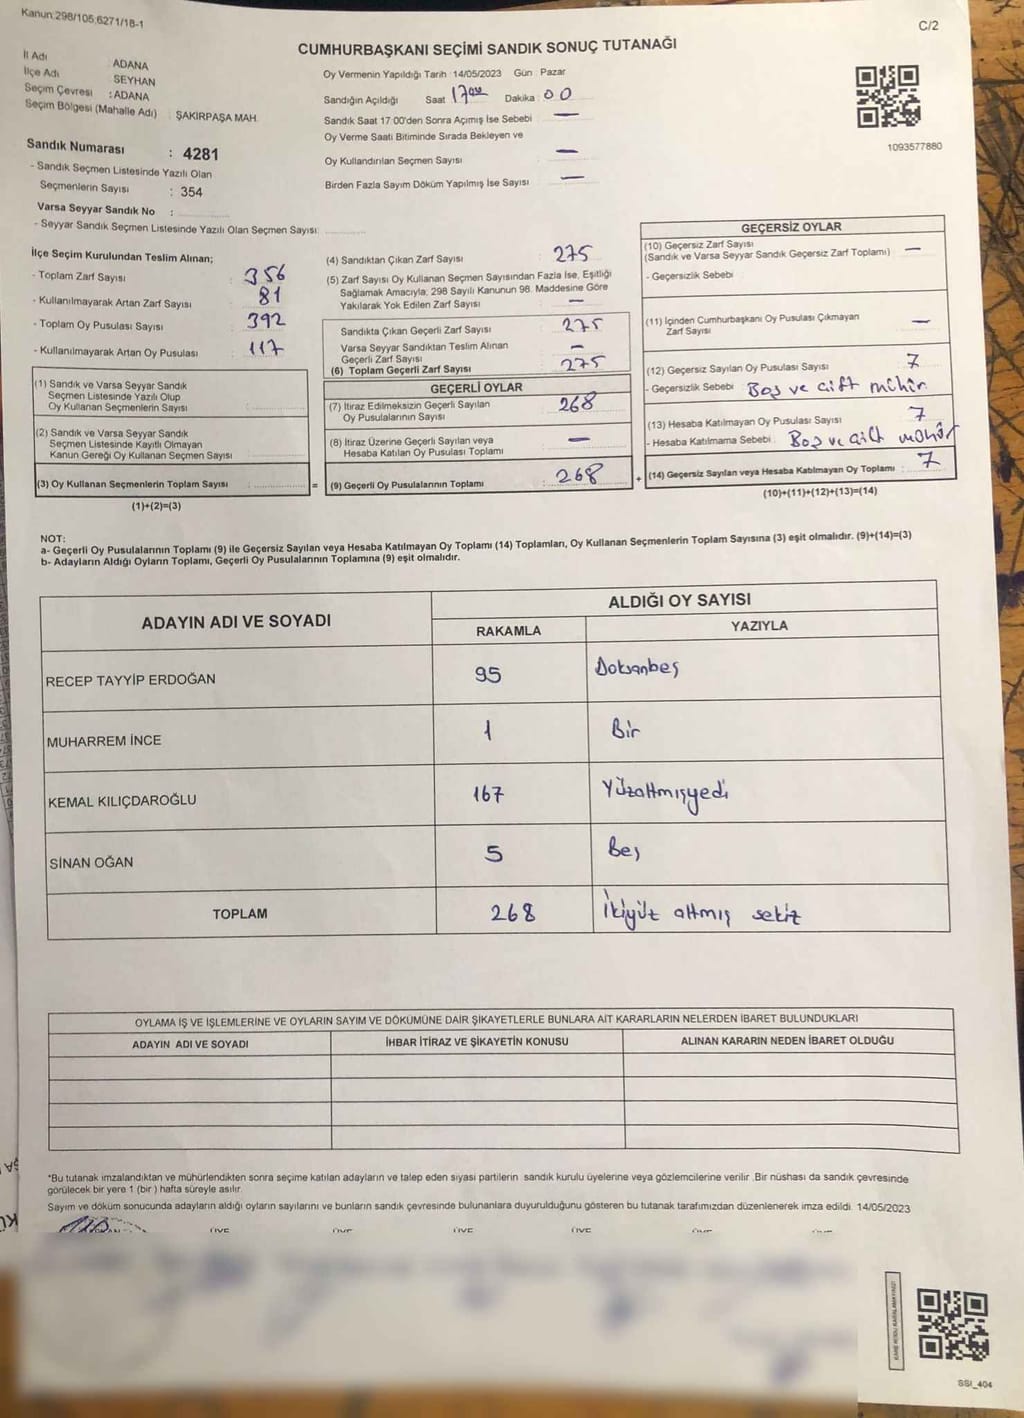 Kanun:298/105;6271/18-1
C/2
CUMHURBAŞKANI SEÇİMİ SANDIK SONUÇ TUTANAĞI
İl Adı : ADANA
İlçe Adı : SEYHAN
Seçim Çevresi : ADANA
Seçim Bölgesi (Mahalle Adı) : ŞAKİRPAŞA MAH.
Sandık Numarası : 4281
- Sandık Seçmen Listesinde Yazılı Olan
Seçmenlerin Sayısı : 354
Varsa Seyyar Sandık No :
- Seyyar Sandık Seçmen Listesinde Yazılı Olan Seçmen Sayısı:
Oy Vermenin Yapıldığı Tarih :14/05/2023 Gün : Pazar
Sandığın Açıldığı Saat : 17⁰⁰ Dakika : 00
Sandık Saat 17:00'den Sonra Açımış İse Sebebi : —
Oy Verme Saati Bitiminde Sırada Bekleyen ve
Oy Kullandırılan Seçmen Sayısı : —
Birden Fazla Sayım Döküm Yapılmış İse Sayısı : —
1093577880
İlçe Seçim Kurulundan Teslim Alınan;
- Toplam Zarf Sayısı : 356
- Kullanılmayarak Artan Zarf Sayısı : 81
- Toplam Oy Pusulası Sayısı : 392
- Kullanılmayarak Artan Oy Pusulası : 117
(1) Sandık ve Varsa Seyyar Sandık
Seçmen Listesinde Yazılı Olup
Oy Kullanan Seçmenlerin Sayısı :
(2) Sandık ve Varsa Seyyar Sandık
Seçmen Listesinde Kayıtlı Olmayan
Kanun Gereği Oy Kullanan Seçmen Sayısı :
(3) Oy Kullanan Seçmenlerin Toplam Sayısı : =
(1)+(2)=(3)
(4) Sandıktan Çıkan Zarf Sayısı : 275
(5) Zarf Sayısı Oy Kullanan Seçmen Sayısından Fazla İse, Eşitliği
Sağlamak Amacıyla; 298 Sayılı Kanunun 98. Maddesine Göre
Yakılarak Yok Edilen Zarf Sayısı : —
Sandıkta Çıkan Geçerli Zarf Sayısı : 275
Varsa Seyyar Sandıktan Teslim Alınan
Geçerli Zarf Sayısı : —
(6) Toplam Geçerli Zarf Sayısı : 275
GEÇERLİ OYLAR
(7) İtiraz Edilmeksizin Geçerli Sayılan
Oy Pusulalarının Sayısı : 268
(8) İtiraz Üzerine Geçerli Sayılan veya
Hesaba Katılan Oy Pusulası Toplamı : —
(9) Geçerli Oy Pusulalarının Toplamı : 268 +
GEÇERSİZ OYLAR
(10) Geçersiz Zarf Sayısı
(Sandık ve Varsa Seyyar Sandık Geçersiz Zarf Toplamı) : —
- Geçersizlik Sebebi :
(11) İçinden Cumhurbaşkanı Oy Pusulası Çıkmayan
Zarf Sayısı : —
(12) Geçersiz Sayılan Oy Pusulası Sayısı : 7
- Geçersizlik Sebebi : Boş ve çift mühür
(13) Hesaba Katılmayan Oy Pusulası Sayısı : 7
- Hesaba Katılmama Sebebi : Boş ve çift mühür
(14) Geçersiz Sayılan veya Hesaba Katılmayan Oy Toplamı : 7
(10)+(11)+(12)+(13)=(14)
NOT:
a- Geçerli Oy Pusulalarının Toplamı (9) ile Geçersiz Sayılan veya Hesaba Katılmayan Oy Toplamı (14) Toplamları, Oy Kullanan Seçmenlerin Toplam Sayısına (3) eşit olmalıdır. (9)+(14)=(3)
b- Adayların Aldığı Oyların Toplamı, Geçerli Oy Pusulalarının Toplamına (9) eşit olmalıdır.
ADAYIN ADI VE SOYADI
ALDIĞI OY SAYISI
RAKAMLA YAZIYLA
RECEP TAYYİP ERDOĞAN 95 Doksanbeş
MUHARREM İNCE 1 Bir
KEMAL KILIÇDAROĞLU 167 Yüzaltmışyedi
SİNAN OĞAN 5 Beş
TOPLAM 268 İkiyüz altmış sekiz
OYLAMA İŞ VE İŞLEMLERİNE VE OYLARIN SAYIM VE DÖKÜMÜNE DAİR ŞİKAYETLERLE BUNLARA AİT KARARLARIN NELERDEN İBARET BULUNDUKLARI
ADAYIN ADI VE SOYADI İHBAR İTİRAZ VE ŞİKAYETİN KONUSU ALINAN KARARIN NEDEN İBARET OLDUĞU
*Bu tutanak imzalandıktan ve mühürlendikten sonra seçime katılan adayların ve talep eden siyasi partilerin sandık kurulu üyelerine veya gözlemcilerine verilir. Bir nüshası da sandık çevresinde
görülecek bir yere 1 (bir ) hafta süreyle asılır.
Sayım ve döküm sonucunda adayların aldığı oyların sayılarını ve bunların sandık çevresinde bulunanlara duyurulduğunu gösteren bu tutanak tarafımızdan düzenlenerek imza edildi. 14/05/2023
ÜYE ÜYE ÜYE ÜYE
SSI_404